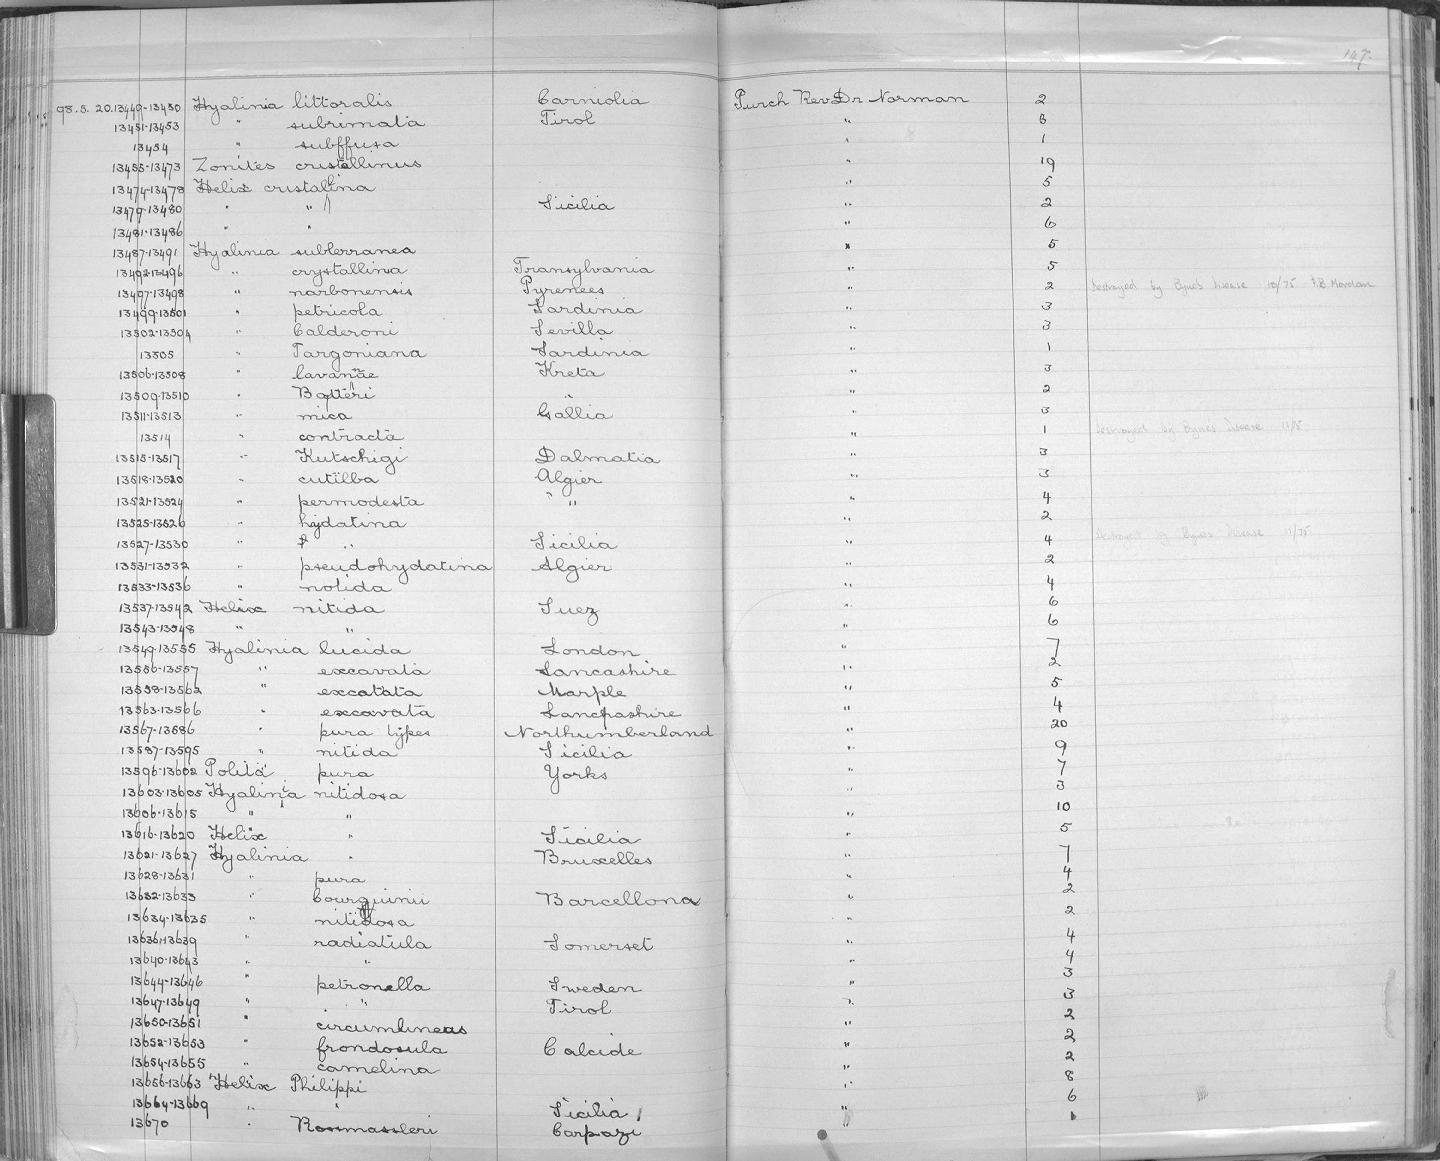 147.
98.5.20.13449-13450 Hyalinia littoralis Carniolia Purch Rev Dr Norman 2
13451-13453 " subrimata Tirol " 3
13454 " subffusa " 1
13455-13473 Zonites cristallinus " 19
13474-13478 Helix cristalina " 5
13479-13480 " " Sicilia " 2
13481-13486 " " " 6
13487-13491 Hyalinia subterranea " 5
13492-13496 " crystallina Transylvania " 5
13497-13498 " narbonensis Pyrenees " 2 Destroyed by Byne's Disease 10/75
13499-13501 " petricola Sardinia " 3
13502-13504 " Calderoni Sevilla " 3
13505 " Targoniana Sardinia " 1
13506-13508 " Kreta " 3
13509-13510 " " " 2
13511-13513 " mica Gallia " 3
13514 " contracta " 1 Destroyed by Bynes Disease 11/75
13515-13517 " Kutschigi Dalmatia " 3
13518-13520 " cutilba Algier " 3
13521-13524 " permodesta " " " 4
13525-13526 " hydatina " 2
13527-13530 " " Sicilia " 4 Destroyed by Bynes Disease 11/75
13531-13532 " pseudohydatina Algier " 2
13533-13536 " notida " 4
13537-13542 Helix nitida Suez " 6
13543-13548 " " " 6
13549-13555 Hyalinia lucida London " 7
13556-13557 " excavata Lancashire " 2
13558-13562 " excatata Marple " 5
13563-13566 " excavata Lancashire " 4
13567-13586 " pura types Northumberland " 20
13587-13595 " nitida Sicilia " 9
13596-13602 Polita pura Yorks " 7
13603-13605 Hyalinia nitidosa " 3
13606-13615 " " " 10
13616-13620 Helix " Sicilia " 5
13621-13627 Hyalinia " Bruxelles " 7
13628-13631 " pura " 4
13632-13633 " Courquinii Barcellona " 2
13634-13635 " nitidosa " 2
13636-13639 " radiatula Somerset " 4
13640-13643 " " " 4
13644-13646 " petronella Sweden " 3
13647-13649 " " Tirol " 3
13650-13651 " circumlineas " 2
13652-13653 " frondosula Calcide " 2
13654-13655 " camelina " 2
13656-13663 Helix Philippi " 8
13664-13669 " " Sicilia " 6
13670 " Rossmassleri Carpazi " 1